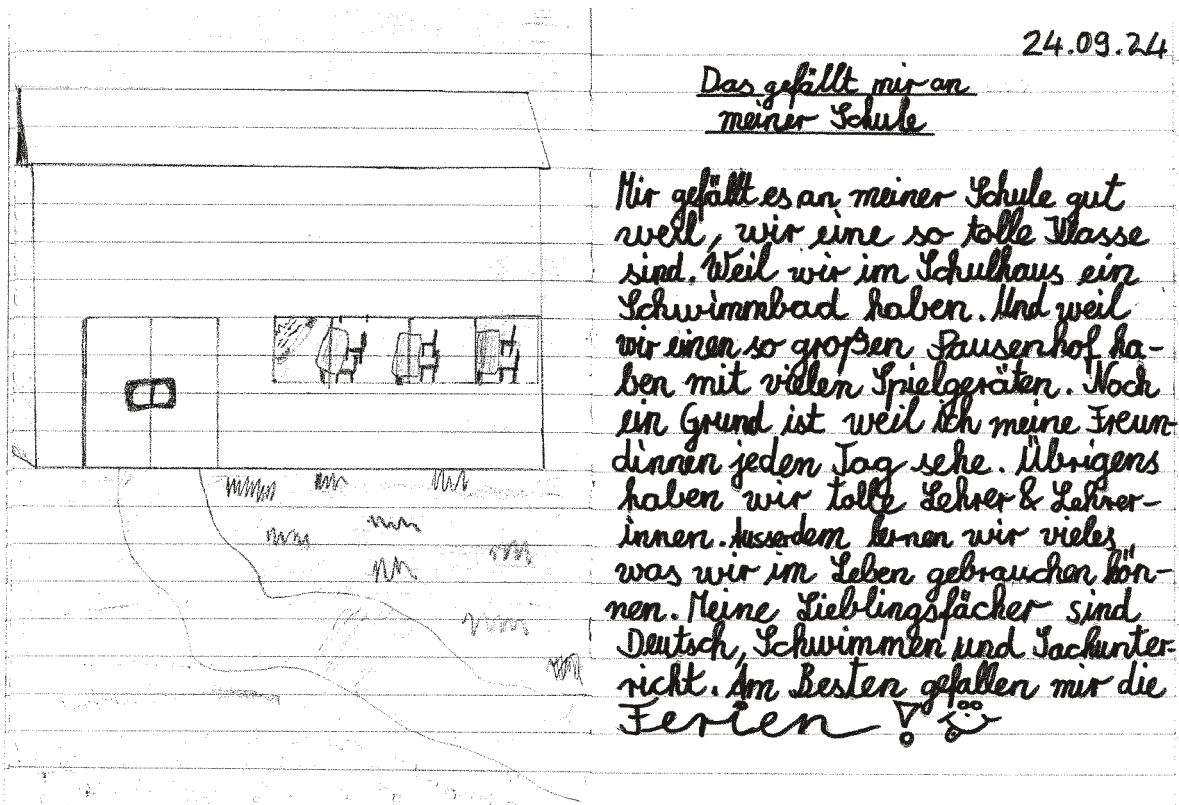 24.09.24
Das gefällt mir an
meiner Schule
Mir gefällt es an meiner Schule gut
weil, wir eine so tolle Klasse
sind. Weil wir im Schulhaus ein
Schwimmbad haben. Und weil
wir einen so großen Pausenhof ha-
ben mit vielen Spielgeräten. Noch
ein Grund ist weil ich meine Freun-
dinnen jeden Tag sehe. Übrigens
haben wir tolle Lehrer & Lehrer-
innen. Ausserdem lernen wir vieles,
was wir im Leben gebrauchen kön-
nen. Meine Lieblingsfächer sind
Deutsch, Schwimmen und Sachunter-
richt. Am Besten gefallen mir die
Ferien !